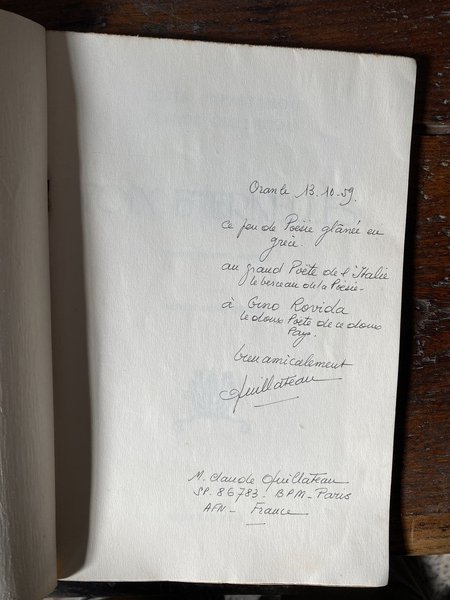 Oran le 13.10.59.
ce peu de Poësie glanée en
grèce.
au grand Poëte de l'Italie
le berceau de la Poesie-
à Gino Rovida
le doux Poëte de ce doux
Pays.
bien amicalement
Quillateau
M. Claude Quillateau
SP. 86783. BPM - Paris
AFN - France